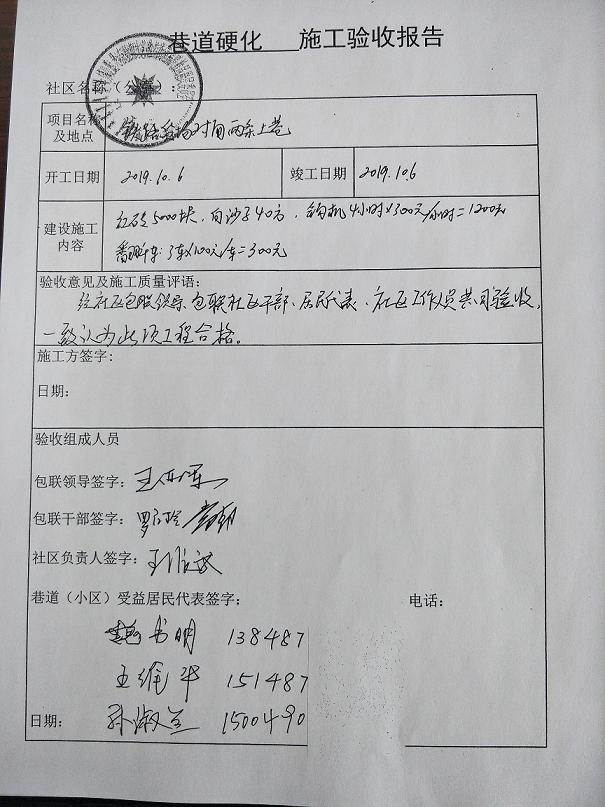 巷道硬化 施工验收报告
社区名称（公章）：
项目名称及地点 对面两条土巷
开工日期 2019.10.6 竣工日期 2019.10.6
建设施工内容 红砖5000块，白沙子40方，钩机4小时×300元/小时=1200元
翻斗车：3车×100元/车=300元
验收意见及施工质量评语：
经社区包联领导、包联社区干部、居民代表、社区工作人员共同验收，
一致认为此项工程合格。
施工方签字：
日期：
验收组成人员
包联领导签字：
包联干部签字：
社区负责人签字：
巷道（小区）受益居民代表签字： 电话：
书明 138487
王维华 151487
孙淑兰 1500490
日期：